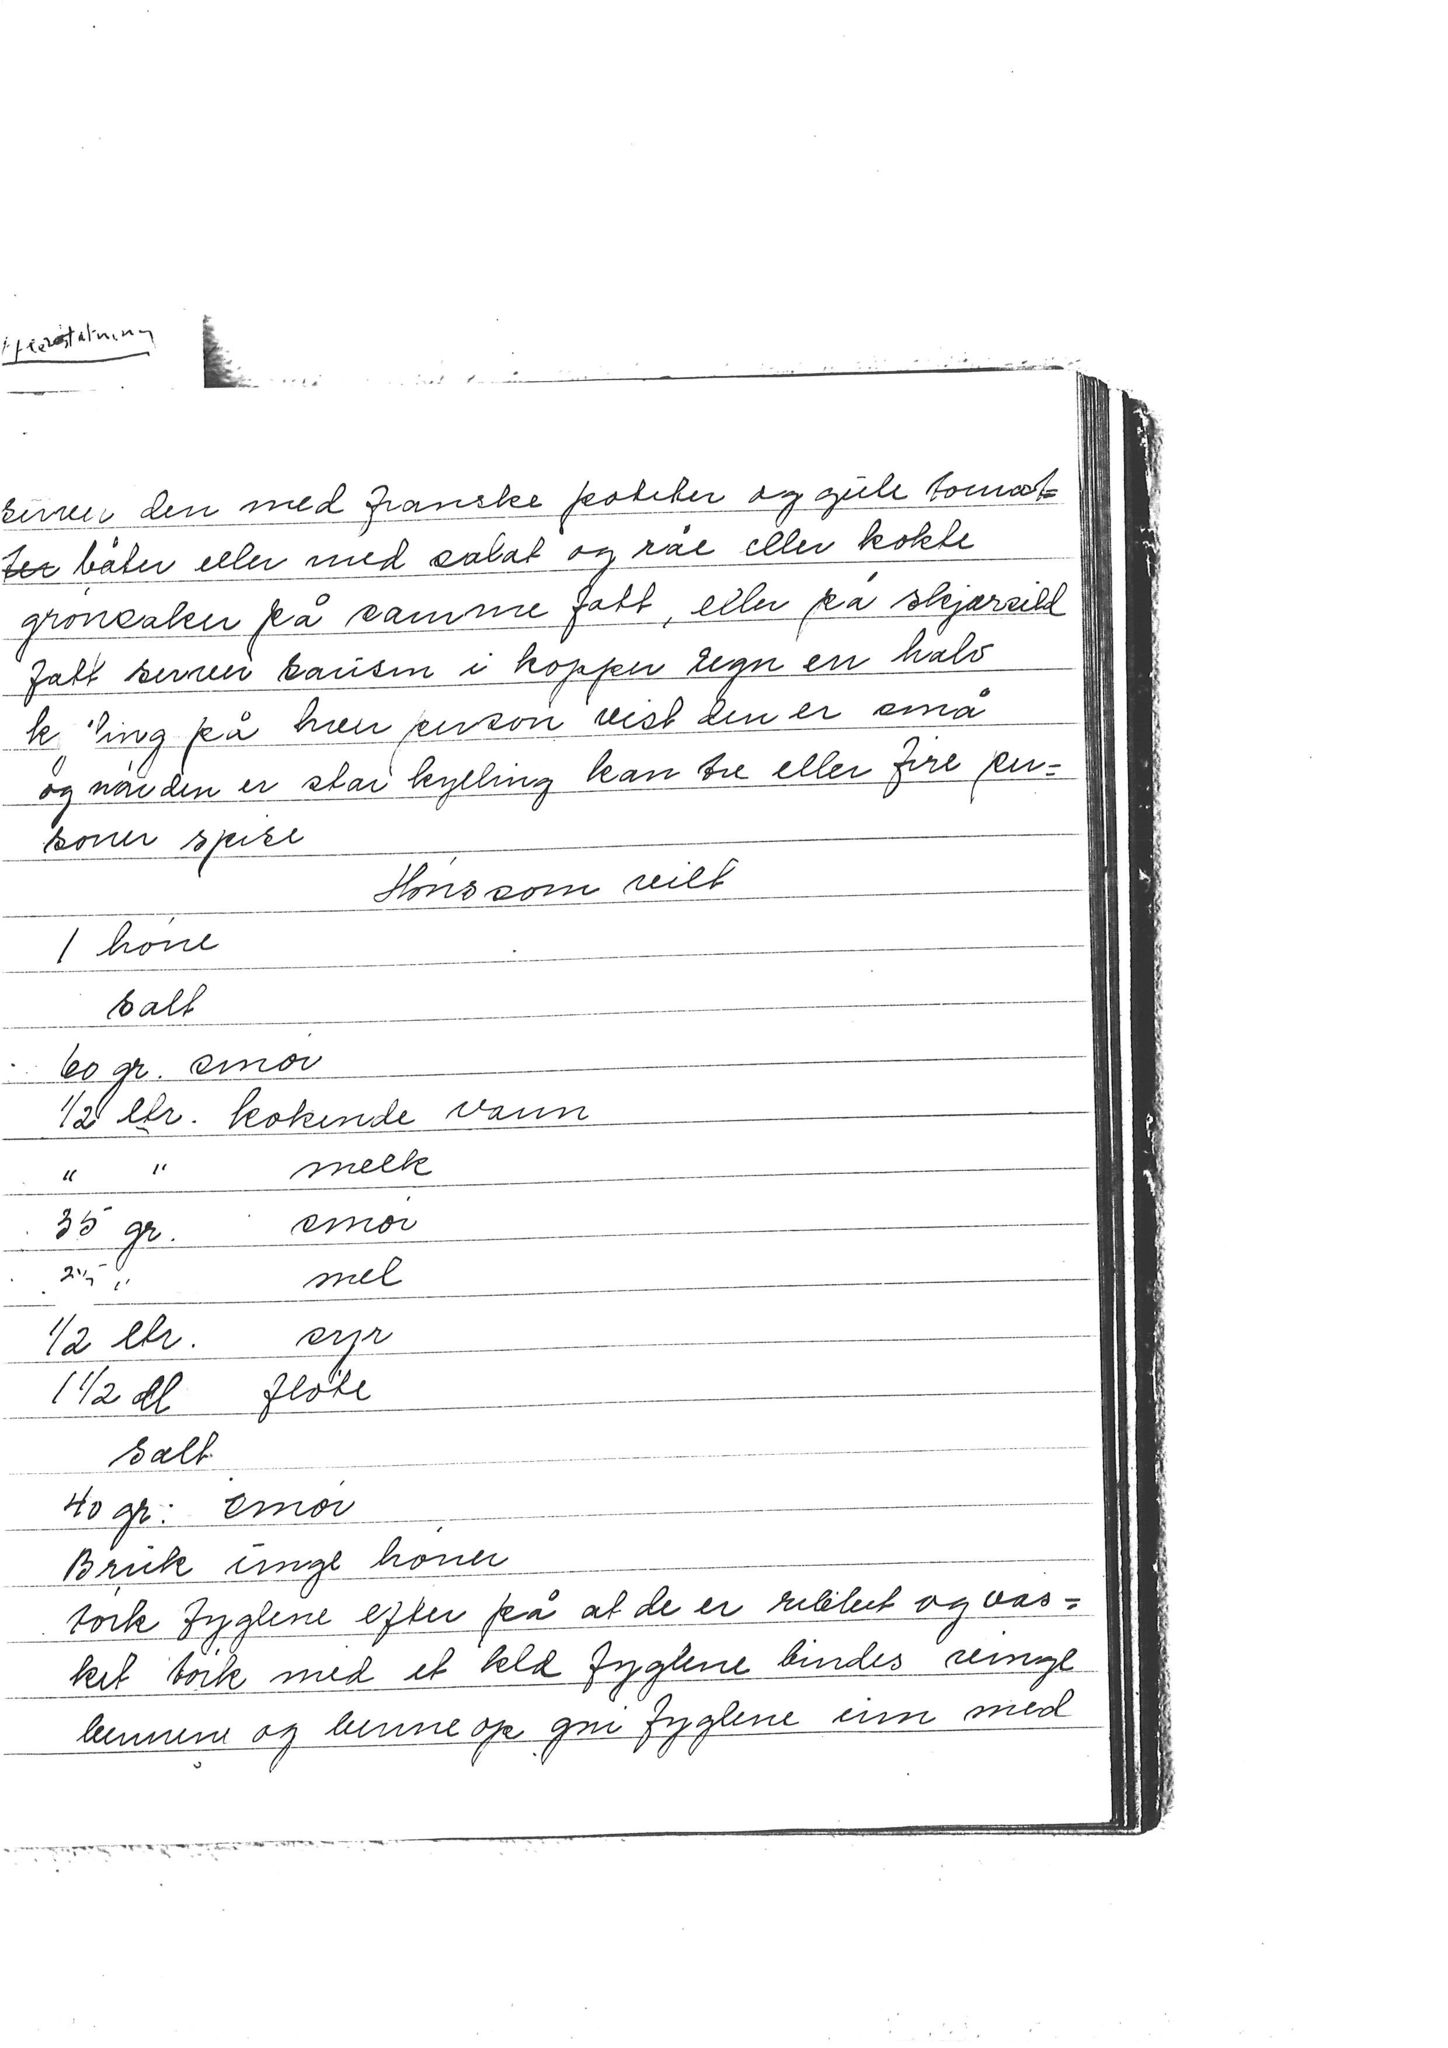 server den med franske poteter og gule tomat=
ter båter eller med salat og råe eller kokte
grönsaker på samme fatt, eller på skjærsild
fatt server sausen i kopper regn en halv
k ling på hver person vist den er små
og når den er stor kyling kan tre eller fire per=
soner spise
Höns som vilt
1 höne
salt
60 gr. smör
1/2 ltr. kokende vann
" " melk
35 gr. smör
" mel
1/2 ltr. syr
1 1/2 dl flöte
salt
40 gr: smör
Bruk unge höner
törk fyglene efter på at de er ribbet og vas=
ket törk med et kld fyglene bindes vinge
bennene og benne op gni fyglene inn med